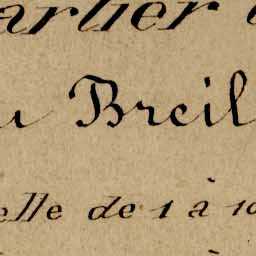 arlier
u Breil
elle de 1 à 10